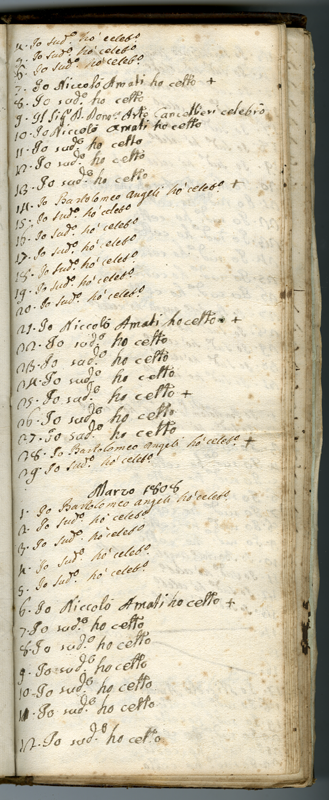 4. Io sud.º hò celeb.º
5. Io sud.º hò celeb.º
6. Io sud.º hò celeb.º
7. Io Niccolò Amati ho cetto +
8. Io sud.º ho cetto
9. Il Sig.r D. Cancellieri celebrò
10. Io Niccolò Amati ho cetto
11. Io sud.º ho cetto
12. Io sud.º ho cetto
13. Io sud.º ho cetto
14. Io Bartolomeo Angeli hò celeb.º +
15. Io sud.º hò celeb.º
16. Io sud.º hò celeb.º
17. Io sud.º hò celeb.º
18. Io sud.º hò celeb.º
19. Io sud.º hò celeb.º
20. Io sud.º hò celeb.º
21. Io Niccolò Amati ho cetto +
22. Io sud.º ho cetto
23. Io sud.º ho cetto
24. Io sud.º ho cetto
25. Io sud.º ho cetto +
26. Io sud.º ho cetto
27. Io sud.º ho cetto
28. Io Bartolomeo Angeli hò celeb.º +
29. Io sud.º hò celeb.º
Marzo 1808
1. Io Bartolomeo Angeli hò celeb.º
2. Io sud.º hò celeb.º
3. Io sud.º hò celeb.º
4. Io sud.º hò celeb.º
5. Io sud.º hò celeb.º
6. Io Niccolò Amati ho cetto +
7. Io sud.º ho cetto
8. Io sud.º ho cetto
9. Io sud.º ho cetto
10. Io sud.º ho cetto
11. Io sud.º ho cetto
12. Io sud.º ho cetto